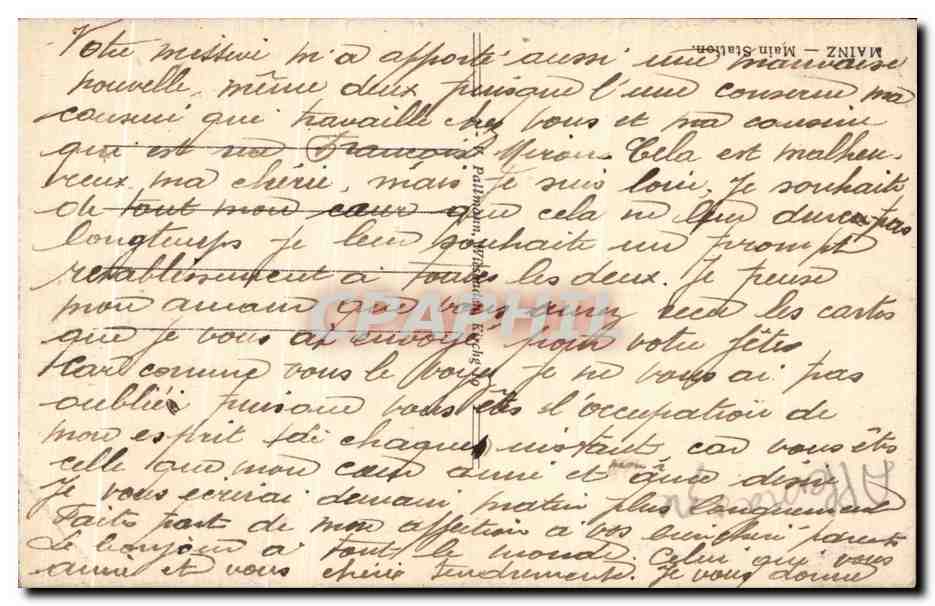 Votre missive m'a apporté aussi une mauvaise
nouvelle, même deux puisque l'une concerne ma
cousine qui travaille chez vous et ma cousine
qui est né François Miron. Cela est malheu-
reux ma chérie, mais je suis loin. Je souhaite
de tout mon cœur que cela ne leur durera pas
longtemps je leur souhaite un prompt
retablissement à toutes les deux. Je pense
mon amour que vous aurez recu les cartes
que je vous ai envoyé pour votre fêtes
Car comme vous le voyez je ne vous ai pas
oubliée puisque vous êtes l'occupation de
mon esprit de chaque instant car vous êtes
celle que mon cœur aime et que désire
Je vous écrirai demain matin plus longuement
Faites part de mon affection à vos bien chéri parents
Le bonjour à tout le monde. Celui qui vous
aime et vous chérie tendrement. Je vous donne
MAINZ — Main Station.
Pallmann, Wiesbaden, Kirchg.
Allemagne
CPAPHIL